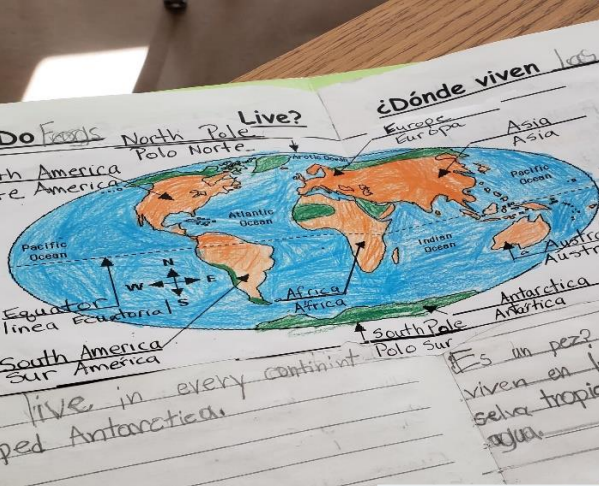 Do Frogs Live? ¿Dónde viven las
North Pole
Polo Norte
Europe
Európa
Asia
Asia
th America
re America
Arctic Ocean
Pacific
Ocean
Atlantic
Ocean
Pacific
Ocean
Indian
Ocean
N
W E
S
Africa
Africa
Austra
Austra
Equator
línea Ecuatorial
Antarctica
Antártica
South Pole
Polo Sur
South America
Sur América
live in every continint
ped Antarctica.
Es un pez?
viven en l
selva tropic
agua.